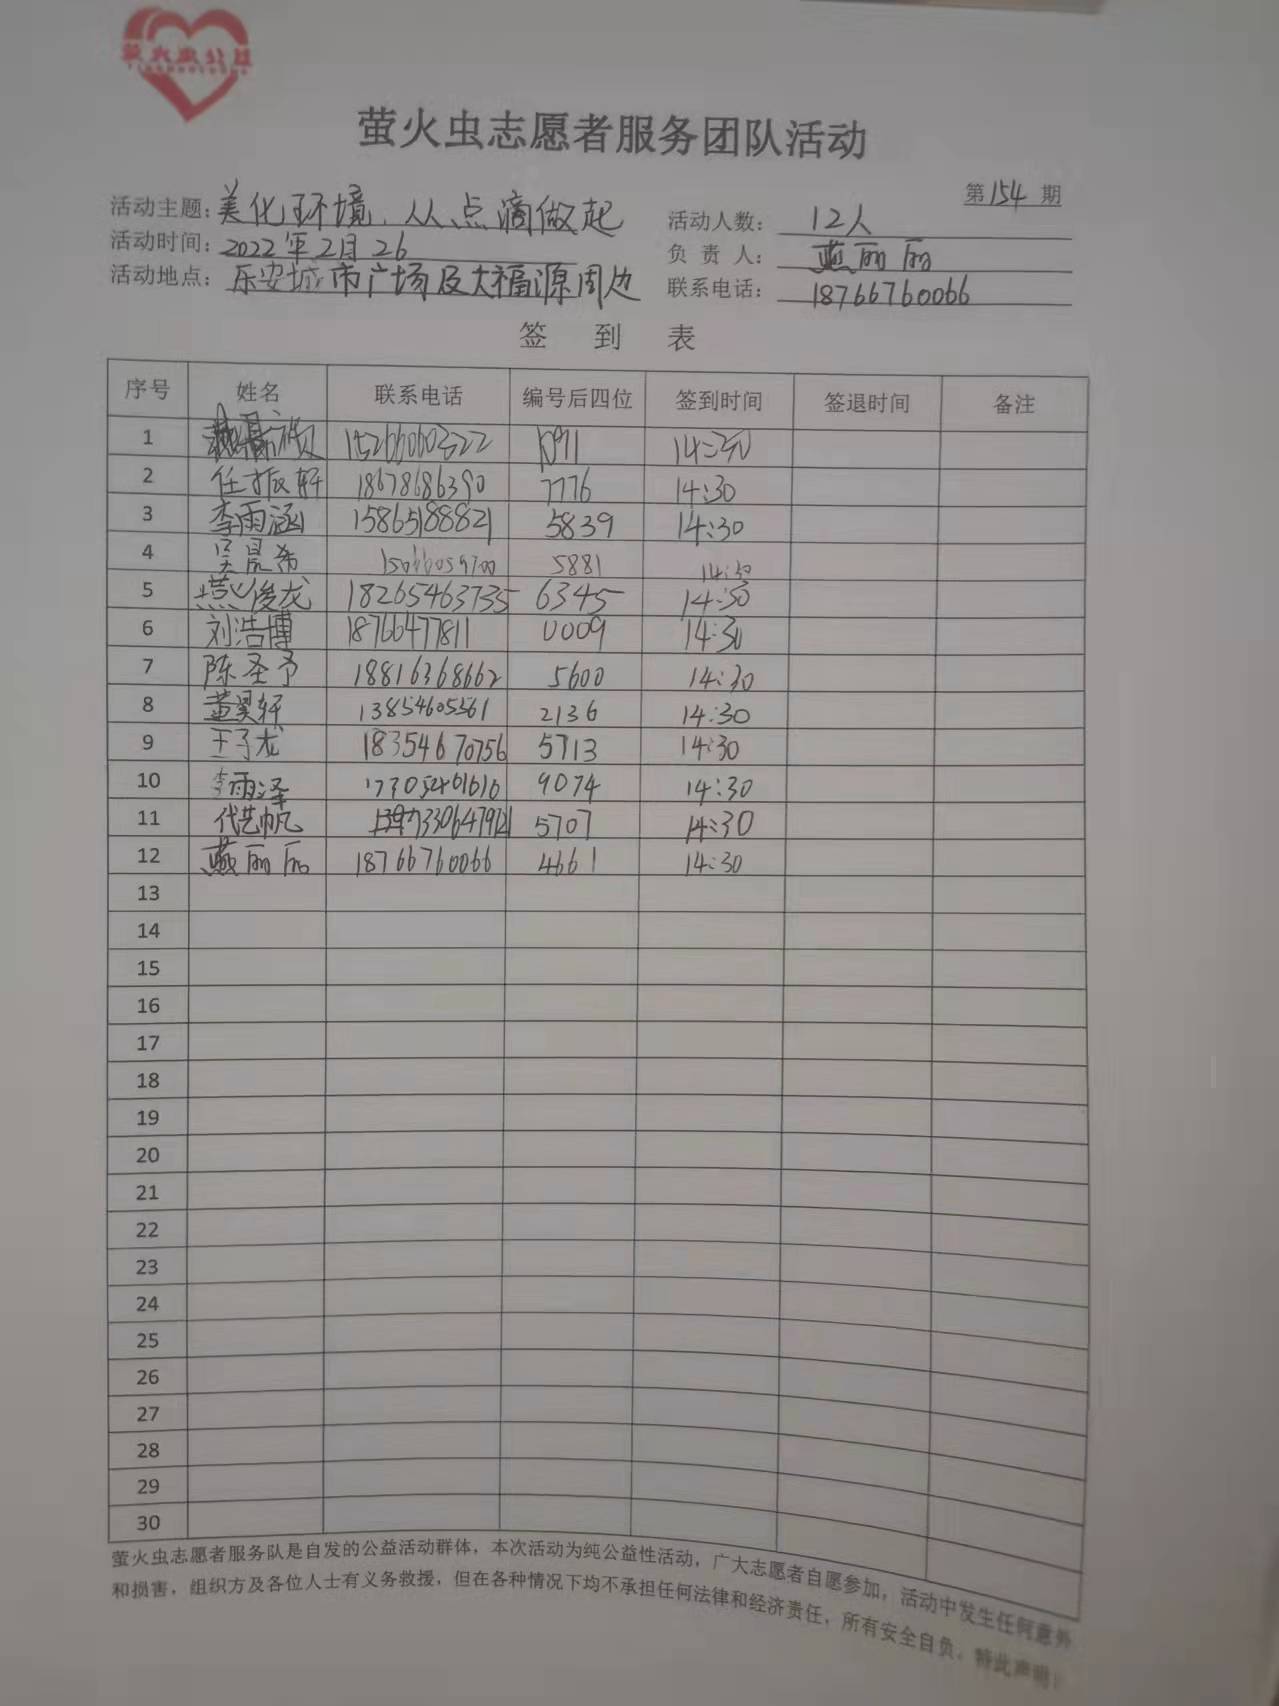 萤火虫公益
萤火虫志愿者服务团队活动
第154期
活动主题：美化环境，从点滴做起 活动人数：12人
活动时间：2022年2月26 负责人：燕丽丽
活动地点：乐安城市广场及大福源周边 联系电话：18766760066
签到表
序号 姓名 联系电话 编号后四位 签到时间 签退时间 备注
1 15266060322 14:30
2 任振轩 18678686390 7776 14:30
3 李雨涵 15865188821 5839 14:30
4 吴晨希 5881 14:30
5 燕俊龙 18265463735 6345 14:30
6 刘浩博 18766477811 0009 14:30
7 陈圣予 18816368662 5600 14:30
8 董昊轩 13854605561 2136 14:30
9 王子龙 18354670756 5713 14:30
10 李雨泽 9074 14:30
11 代艺帆 5707 14:30
12 燕丽丽 18766760066 4661 14:30
13
14
15
16
17
18
19
20
21
22
23
24
25
26
27
28
29
30
萤火虫志愿者服务队是自发的公益活动群体，本次活动为纯公益性活动，广大志愿者自愿参加，活动中发生任何意外
和损害，组织方及各位人士有义务救援，但在各种情况下均不承担任何法律和经济责任，所有安全自负。特此声明！